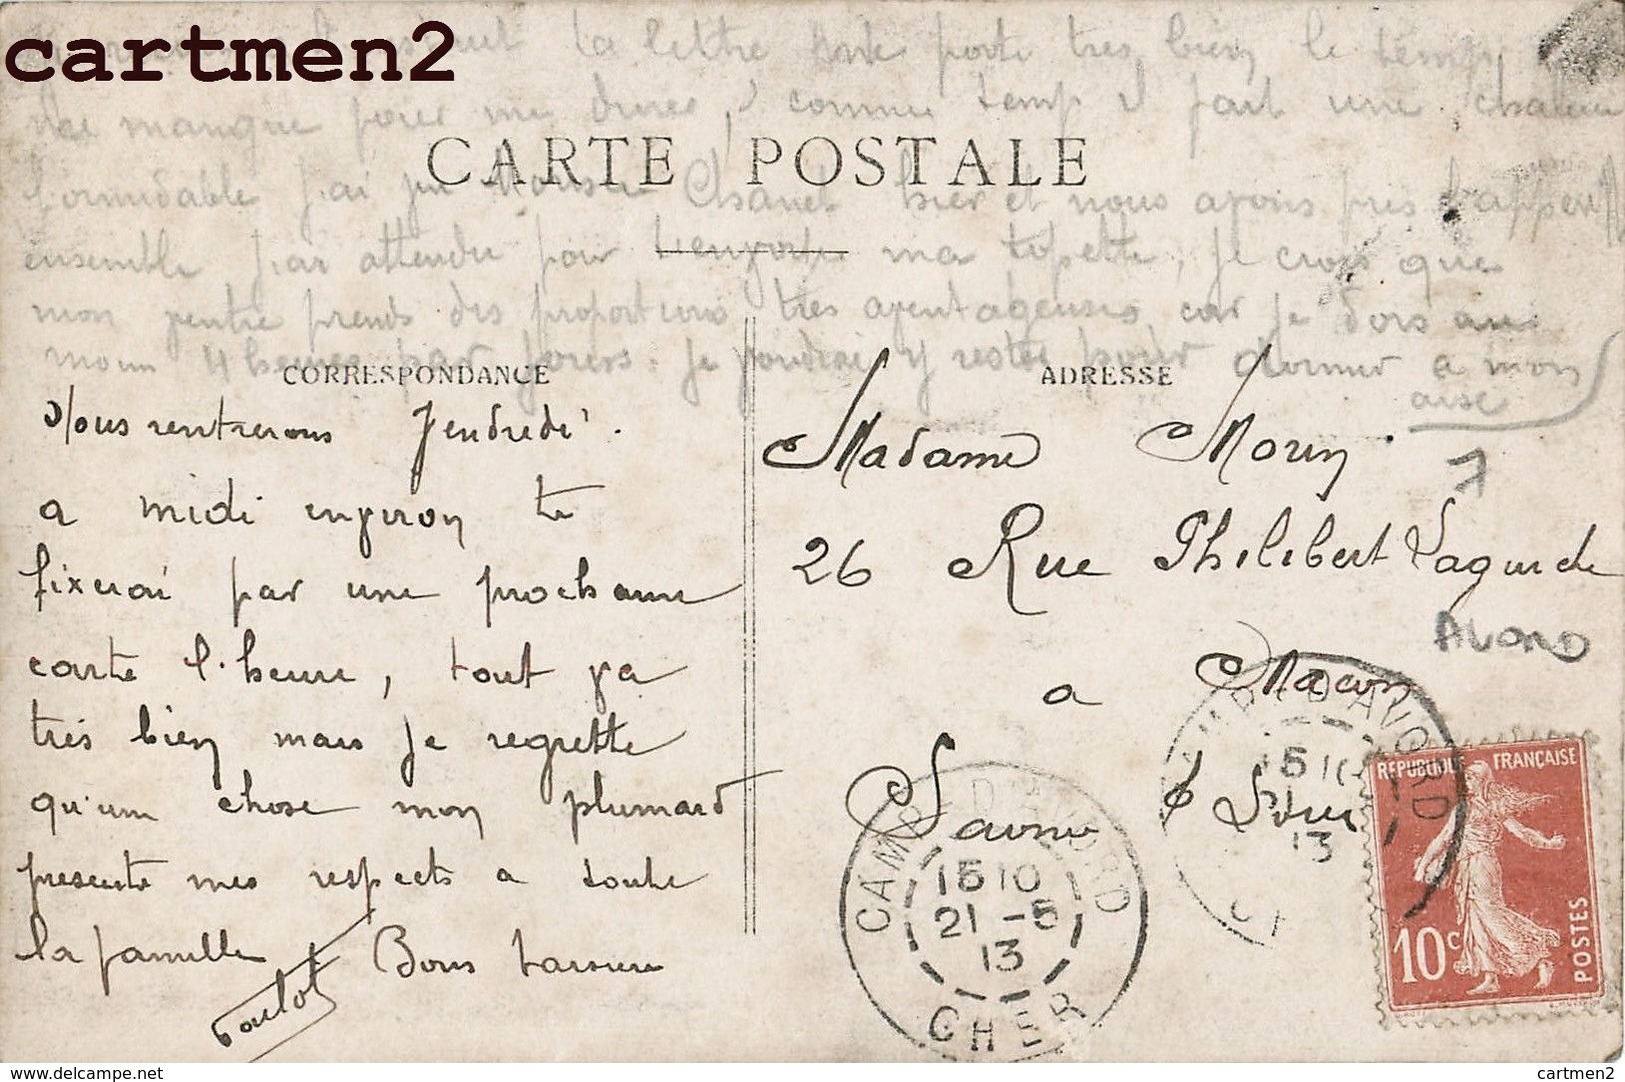 cartmen2
la lettre porte tres bien le temps
me manque pour me durer, comme temp il fait une chaleur
formidable j'ai pu Chanet hier et nous avons pres
ensemble j'ai attendu pour ma topette, je crois que
mon ventre prends des proportions tres aventageuses car je dors au
moin 4 heures par jours. Je voudrai y rester pour dormir a mon
aise
CARTE POSTALE
CORRESPONDANCE
Nous rentrerons Vendredi
a midi environ te
fixerai par une prochaine
carte l'heure, tout va
très bien mais je regrette
qu'une chose mon plumard
presente mes respects a toute
la famille Bons
Poulot
ADRESSE
Madame Morin
26 Rue Philibert Laguiche
a Macon
Saone & Loire
AVORD
CAMP D'AVORD
15 10
21 - 5
13
CHER
CAMP D'AVORD
15 10
13
REPUBLIQUE FRANÇAISE
10c
POSTES
www.delcampe.net
cartmen2